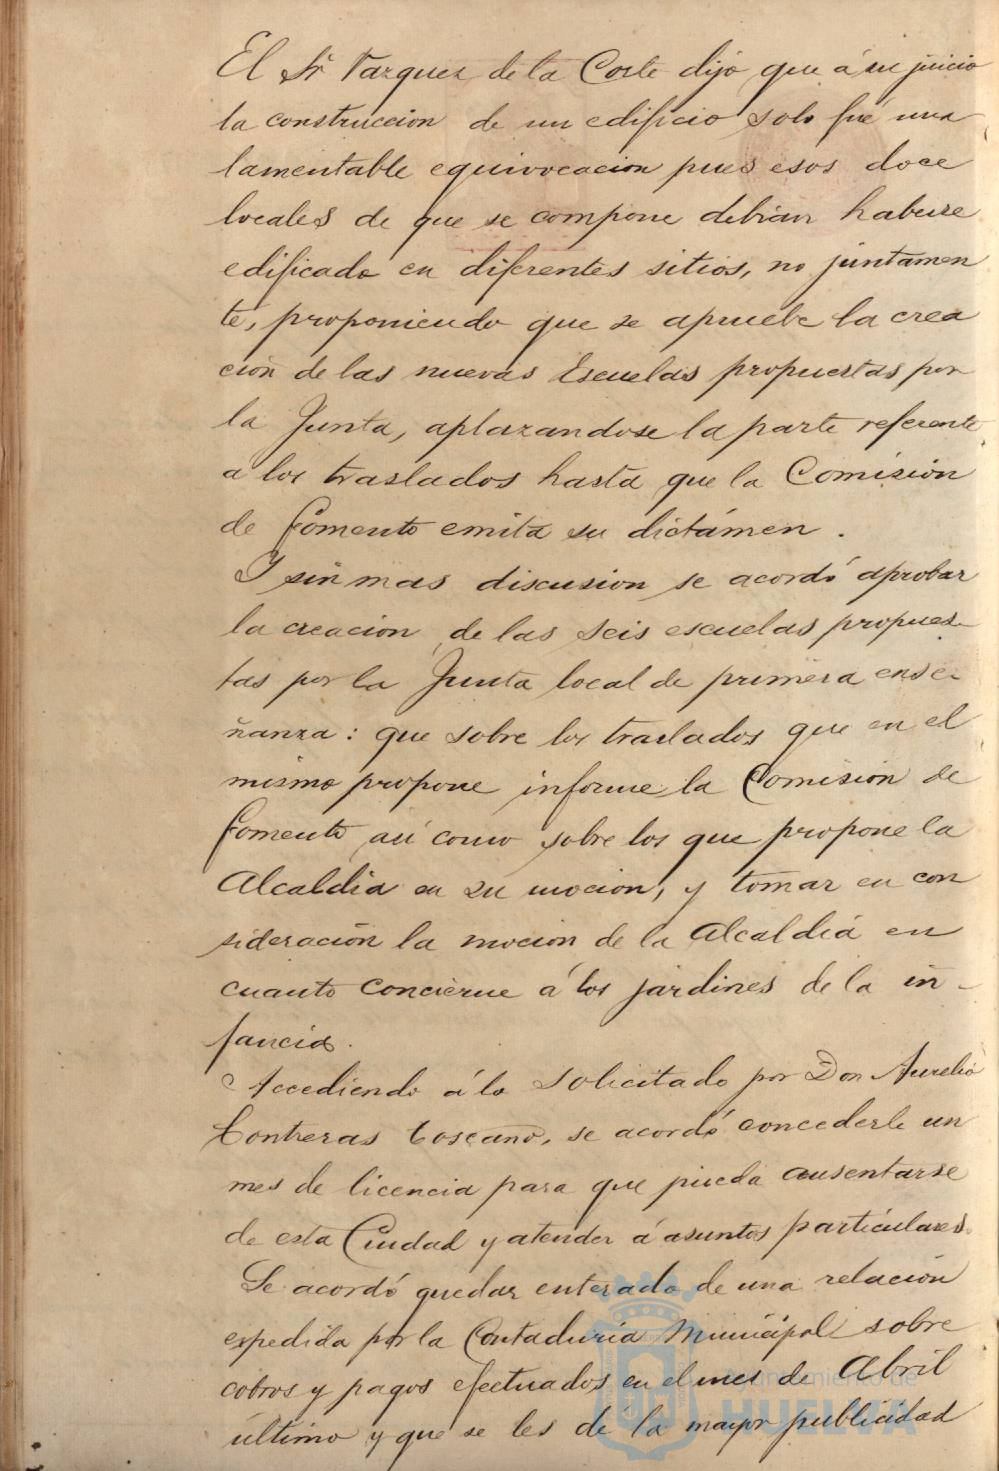 El Sr Vazquez de la Corte dijo que á su juicio
la construccion de un edificio solo fué una
lamentable equivocacion pues esos doce
locales de que se compone debian haberse
edificado en diferentes sitios, no juntamen
te, proponiendo que se apruebe la crea
ción de las nuevas Escuelas propuestas por
la Junta, aplazandose la parte referente
a los traslados hasta que la Comisión
de Fomento emita su dictámen.
Y sin mas discusion se acordó aprobar
la creacion de las seis escuelas propues-
tas por la Junta local de primera ense-
ñanza: que sobre los traslados que en el
mismo propone informe la Comisión de
Fomento así como sobre los que propone la
Alcaldia en su mocion, y tomar en con
sideración la mocion de la Alcaldiá en
cuanto concierne á los jardines de la in-
fancia.
Accediendo á lo solicitado por Don Aurelio
Contreras Toscano, se acordó concederle un
mes de licencia para que pueda ausentarse
de esta Ciudad y atender á asuntos particulares.
Se acordó quedar enterado de una relación
expedida por la Contaduria Municipal sobre
cobros y pagos efectuados en el mes de Abril
último y que se les dé la mayor publicidad
Ayuntamiento de
HUELVA